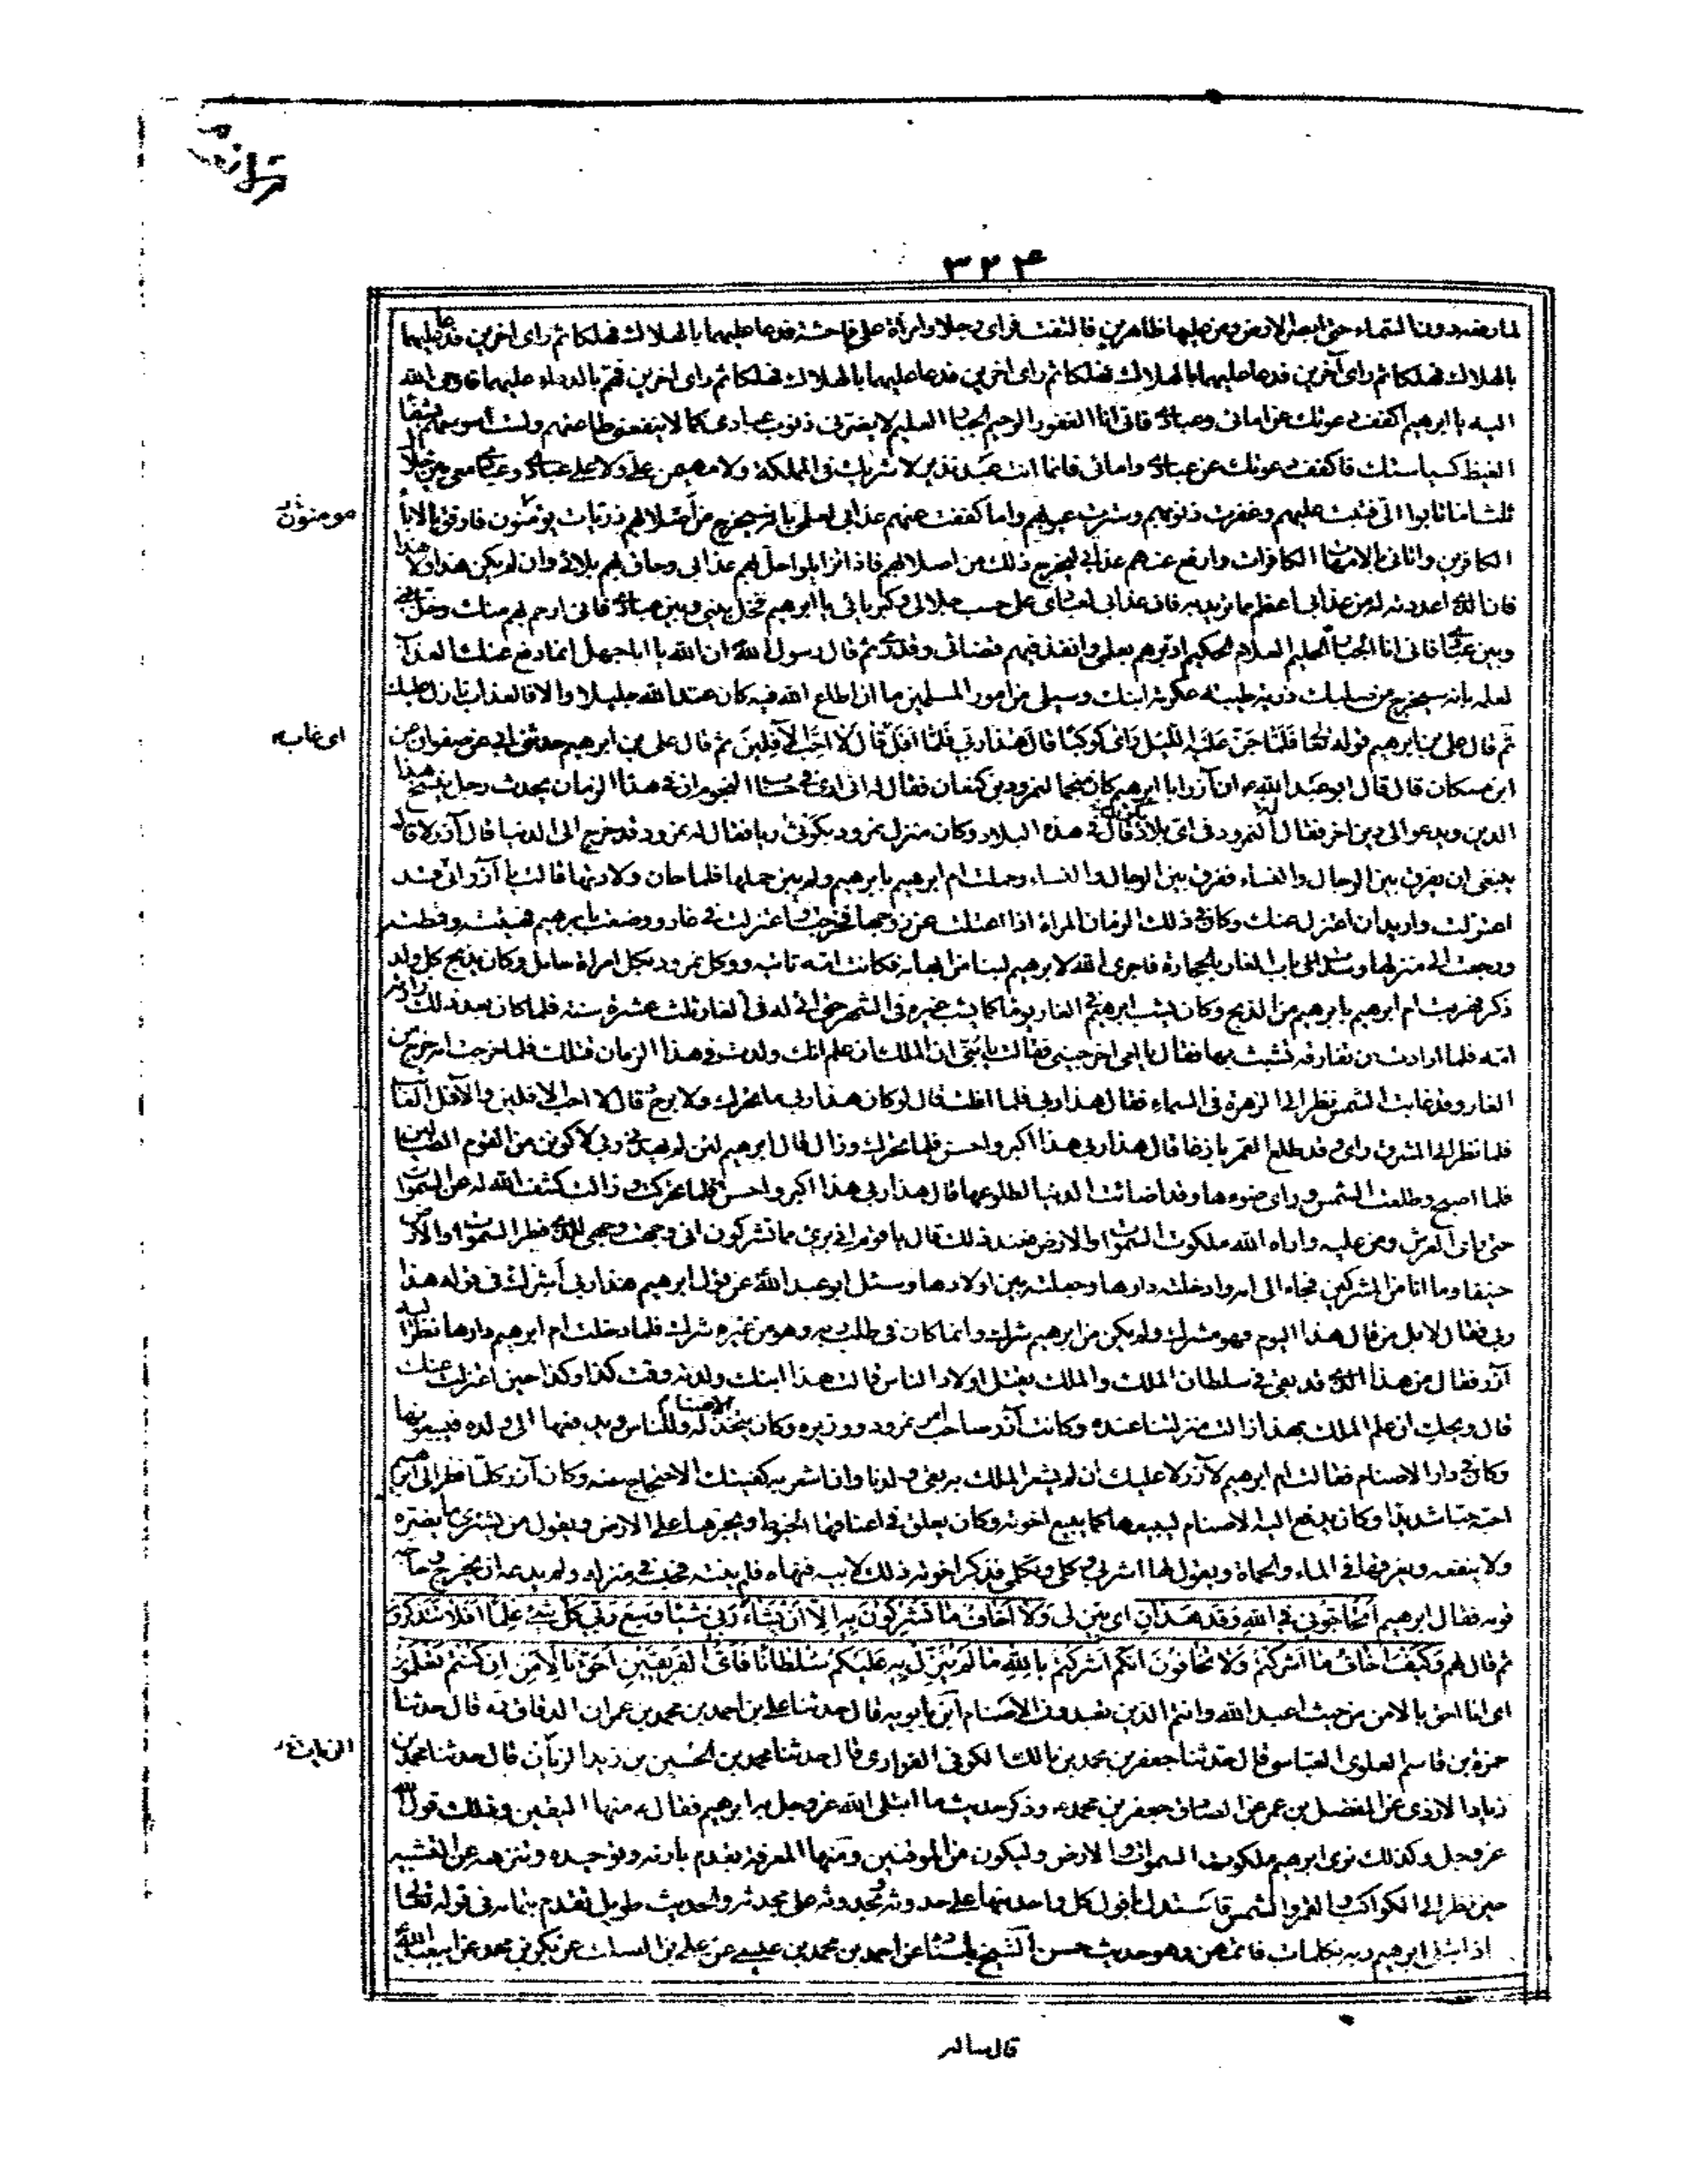 ٣٢۴
لما رفعه دون السماء حتى ابصر الارض ومن عليها ظاهرين فالتفت فراى رجلا وامراة على فاحشة فدعا عليهما بالهلاك فهلكا ثم راى اخرين فدعا عليهما
بالهلاك فهلكا ثم راى آخرين فدعا عليهما بالهلاك فهلكا ثم راى اخرين فهم بالدعاء عليهما فاوحى الله
اليه يا ابرهيم اكفف دعوتك عن امائى وعبادى فانى انا الغفور الرحيم الجبار الحليم لا يضرنى ذنوب عبادى كما لا ينفعنى طاعتهم ولست اسوسهم بشفاء
الغيظ كسياستك فاكفف دعوتك عن عبادى وامائى فانما انت عبد نذير لا شريك فى المملكة ولا مهيمن على ولا على عبادى وعبادى معى بين خلال
ثلث اما تابوا الى فتبت عليهم وغفرت ذنوبهم وسترت عيوبهم واما كففت عنهم عذابى لعلمى بانه سيخرج من اصلابهم ذريات يؤمنون فارفق بالاباء
مومنون
الكافرين واتانى بالامهات الكافرات وارفع عنهم عذابى ليخرج ذلك من اصلابهم فاذا تزايلوا حل بهم عذابى وحاق بهم بلائى وان لم يكن هذا ولا هذا
فان الذى اعددته له من عذابى اعظم مما تريد به فان عذابى لعبادى على حسب جلالى وكبريائى يا ابرهيم فخل بينى وبين عبادى فانى ارحم بهم منك وخل بينى
وبين عبادى فانى انا الجبار الحليم العلام الحكيم ادبرهم بعلمى وانفذ فيهم قضائى وقدرى ثم قال رسول الله ان الله يا ابا جهل انما دفع عنك العذاب
لعلمه بانه سيخرج من صلبك ذرية طيبة عكرمة ابنك وسيلى من امور المسلمين ما ان اطاع الله فيه كان عند الله جليلا والا فالعذاب نازل عليك
ثم قال على بن ابرهيم قوله تعا فَلَمَّا جَنَّ عَلَيْهِ اللَّيْلُ رَاٰى كَوْكَبًا قَالَ هٰذَا رَبِّى فَلَمَّا اَفَلَ قَالَ لَا اُحِبُّ الْاٰفِلِينَ ثم قال على بن ابرهيم حدثنى ابى عن صفوان عن
اى غاب
ابن مسكان قال قال ابو عبد الله ان آزر ابا ابرهيم كان منجما لنمرود بن كنعان فقال له انى ارى فى حساب النجوم ان فى هذا الزمان يحدث رجل ينسخ هذا
الدين ويدعو الى دين اخر فقال له النمرود فى اى بلاد قال فى هذه البلاد وكان منزل نمرود بكوثى ربا فقال له نمرود قد خرج الى الدنيا قال آزر لا قال
ينبغى ان يفرق بين الرجال والنساء ففرق بين الرجال والنساء وحملت ام ابرهيم بابرهيم ولم يبن حملها فلما حان ولادتها قالت يا آزر انى قد
اعتللت واريد ان اعتزل عنك وكان فى ذلك الزمان المراة اذا اعتلت عن زوجها فخرجت واعتزلت فى غار ووضعت بابرهيم فهيئته وقمطته
ورجعت الى منزلها وسدت باب الغار بالحجارة فاجرى الله لابرهيم لبنا من ابهامه فكانت امه تاتيه ووكل نمرود بكل امراة حامل وكان يذبح كل ولد
ذكر فهربت ام ابرهيم بابرهيم من الذبح وكان يشب ابرهيم فى الغار يوما كما يشب غيره فى الشهر حتى اتى له فى الغار ثلث عشرة سنة فلما كان بعد ذلك زارته
امه فلما ارادت ان تفارقه تشبث بها فقال يا امى اخرجينى فقالت يا بنى ان الملك ان علم انك ولدت فى هذا الزمان قتلك فلما خرجت امه خرج من
الغار وقد غابت الشمس نظر الى الزهرة فى السماء فقال هذا ربى فلما افلت قال لو كان هذا ربى ما تحرك ولا برح ثم قال لا احب الافلين والآفل الغائب
فلما نظر الى المشرق راى وقد طلع القمر بازغا قال هذا ربى هذا اكبر واحسن فلما تحرك وزال قال ابرهيم لئن لم يهدنى ربى لاكونن من القوم الضالين
فلما اصبح وطلعت الشمس وراى ضوءها وقد اضائت الدنيا لطلوعها قال هذا ربى هذا اكبر واحسن فلما تحركت وزالت كشف الله له عن السموات
حتى راى العرش ومن عليه واراه الله ملكوت السموات والارض فعند ذلك قال يا قوم انى برىء مما تشركون انى وجهت وجهى للذى فطر السموات والارض
حنيفا وما انا من المشركين فجاء الى امه وادخلته دارها وجعلته بين اولادها وسئل ابو عبد الله عن قول ابرهيم هذا ربى أشرك فى قوله هذا
ربى فقال لا بل من قال هذا اليوم فهو مشرك ولم يكن من ابرهيم شرك وانما كان فى طلب ربه وهو من غيره شرك فلما دخلت ام ابرهيم دارها نظر اليه
آزر فقال من هذا الذى قد بقى فى سلطان الملك والملك يقتل اولاد الناس قالت هذا ابنك ولدته وقت كذا وكذا حين اعتزلت عنك
قال ويحك ان علم الملك بهذا زالت منزلتنا عنده وكانت آزر صاحب امر نمرود ووزيره وكان يتخذ الاصنام له وللناس ويدفعها الى ولده فيبيعونها
وكان فى دار الاصنام فقالت ام ابرهيم لآزر لا عليك ان لم يشعر الملك به بقى ولدنا وان شعر به كفيتك الاحتجاج عنه وكان آزر كلما نظر الى ابرهيم
احبه حبا شديدا وكان يدفع اليه الاصنام ليبيعها كما يبيع اخوته وكان يعلق فى اعناقها الخيوط ويجرها على الارض ويقول من يشترى ما يضره
ولا ينفعه ويغرقها فى الماء والحماة ويقول لها اشربى وكلى وتكلمى فذكر اخوته ذلك لابيه فنهاه فلم ينته فحبسه فى منزله ولم يدعه ان يخرج وحاجه
قومه فقال ابرهيم اَتُحَاجُّونِّى فِى اللهِ وَقَدْ هَدَانِ اى بين لى وَلَا اَخَافُ مَا تُشْرِكُونَ بِهِ اِلَّا اَنْ يَشَاءَ رَبِّى شَيْئًا وَسِعَ رَبِّى كُلَّ شَىْءٍ عِلْمًا اَفَلَا تَتَذَكَّرُونَ
ثم قال لهم وَكَيْفَ اَخَافُ مَا اَشْرَكْتُمْ وَلَا تَخَافُونَ اَنَّكُمْ اَشْرَكْتُمْ بِاللهِ مَا لَمْ يُنَزِّلْ بِهِ عَلَيْكُمْ سُلْطَانًا فَاَىُّ الْفَرِيقَيْنِ اَحَقُّ بِالْاَمْنِ اِنْ كُنْتُمْ تَعْلَمُونَ
اى انا احق بالامن من حيث اعبد الله وانتم الذين تعبدون الاصنام ابن بابويه قال حدثنا على بن احمد بن محمد بن عمران الدقاق ره قال حدثنا
حمزة بن قاسم العلوى العباسى قال حدثنا جعفر بن محمد بن مالك الكوفى الفزارى قال حدثنا محمد بن الحسين بن زيد الزيات قال حدثنا محمد بن
الزيات
زياد الازدى عن المفضل بن عمر عن الصادق جعفر بن محمد وذكر حديث ما ابتلى الله عز وجل به ابرهيم فقال منها اليقين وذلك قول الله
عز وجل وكذلك نرى ابرهيم ملكوت السموات والارض وليكون من الموقنين ومنها المعرفة بقدم بارئه وتوحيده وتنزيهه عن التشبيه
حين نظر الى الكواكب والقمر والشمس فاستدل بافول كل واحد منها على حدوثه وبحدوثه على محدثه والحديث طويل تقدم بتمامه فى قوله تعالى
اذ ابتلى ابرهيم ربه بكلمات فاتمهن وهو حديث حسن الشيخ باسناده عن احمد بن محمد بن عيسى عن على بن السلت عن بكر بن محمد عن ابى عبد الله
قال ساله